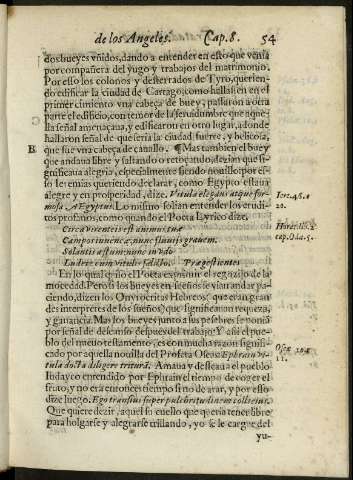 de los Angeles. Cap. 8. 54
dos bueyes vnidos, dando a entender en esto que venia
por compañera del yugo y trabajos del matrimonio.
Por esso los colonos y desterrados de Tyro, querien-
do edificar la ciudad de Cartago, como hallassen en el
primer cimiento vna cabeça de buey, passaron a otra
parte el edificio, con temor de la seruidumbre que aque-
lla señal amenaçaua, y edificaron en otro lugar, a donde
hallaron señal de que seria la ciudad fuerte, y belicosa,
B que fue vna cabeça de cauallo. ¶ Mas tambien el buey
que andaua libre y saltando o retoçando, dezian que si-
gnificaua alegria, especialmente siendo nouillo: por es-
so Ieremias queriendo declarar, como Egypto estaua
alegre y en prosperidad, dize. Vitula elegans atque for-
mosa Ægyptus. Lo mismo solian entender los erudi-
tos profanos, como quando el Poeta Lyrico dize.
Iere. 46. d
20.
Circa virenteis est animus tuæ
Campos iuuencæ, nunc fluuijs grauem.
Solantis æstum: nunc in vdo
Ludere cum vitulis salicto. Prægestientes
Horat. lib. 2
cap. Oda. 5.
En lo qual quiso el Poeta exprimir el regozijo de la
mocedad. Pero si los bueyes en sueños se vian andar pa-
ciendo, dizen los Onyrocritas Hebreos (que eran gran
des interpretes de los sueños) que significauan riqueza,
y ganancia. Mas los bueyes junto a sus pesebres se ponia
por señal de descanso despues del trabajo. Y assi el pue-
blo del nueuo testamento, es con mucha razon signifi-
cado por aquella nouilla del Profeta Oseas: Ephraim vi-
tula docta diligere trituram. Amaua y desseaua el pueblo
Iudayco entendido por Ephrain el tiempo de coger el
fruto, y no era entonces tiempo si no de arar, y por esso
dize luego. Ego transiui super pulchritudinem colli eius.
Oseæ 10. d
11.
Que quiere dezir, aquel su cuello que queria tener libre
para holgarse y alegrarse trillando, yo se le cargue del
yu-